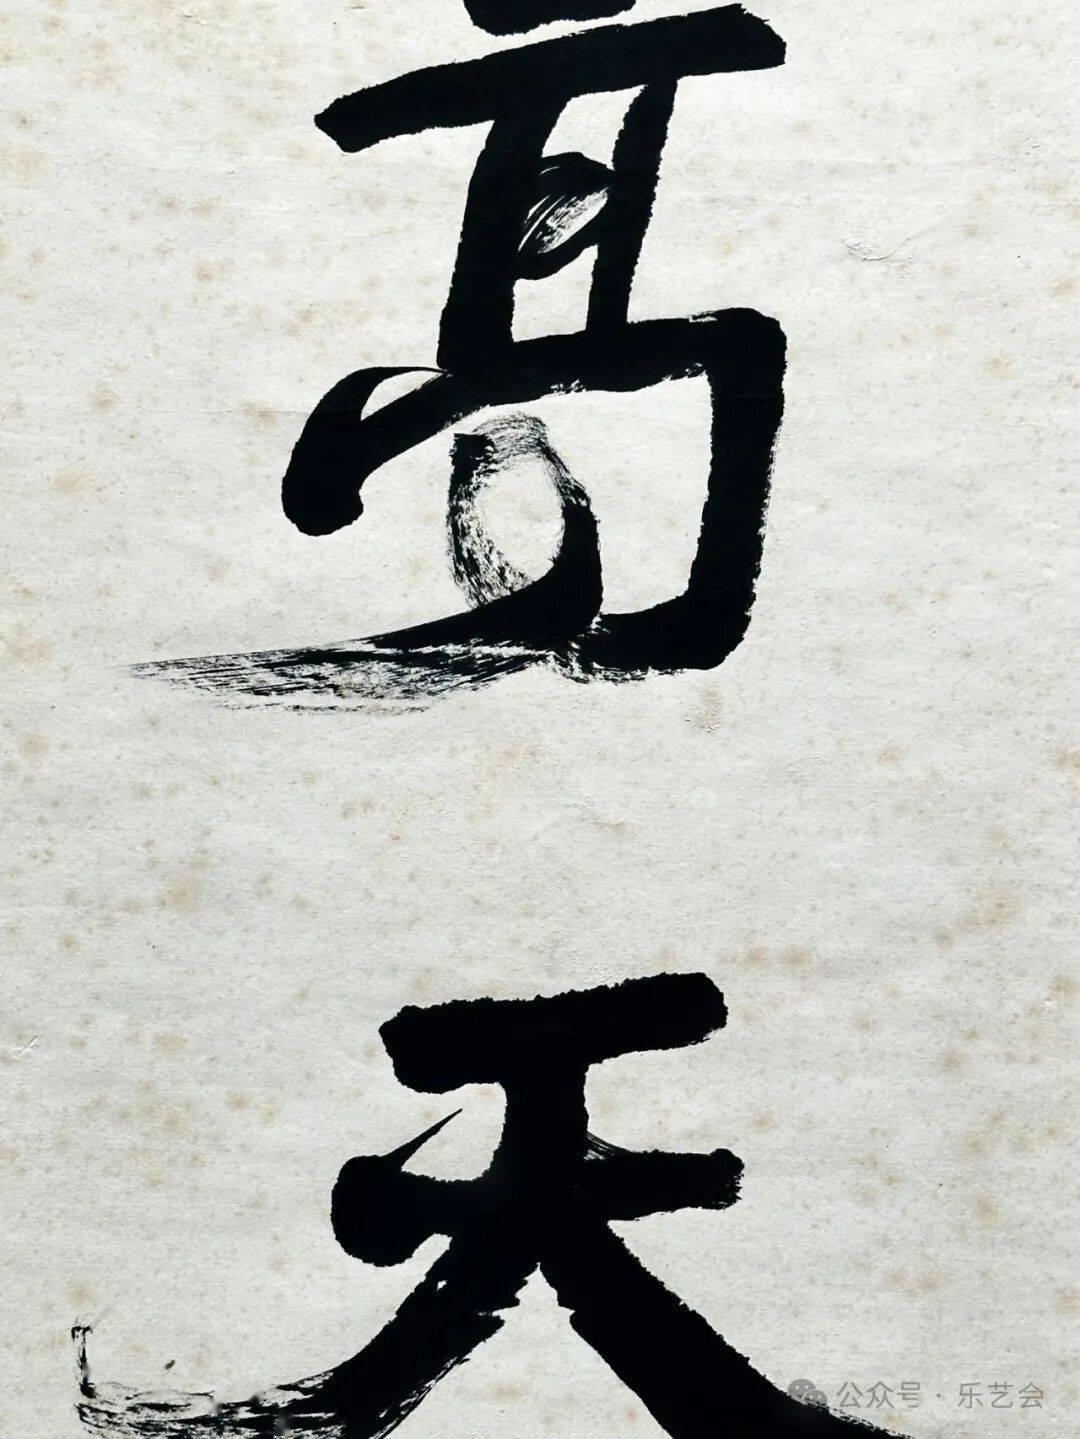 高
天
公众号·乐艺会